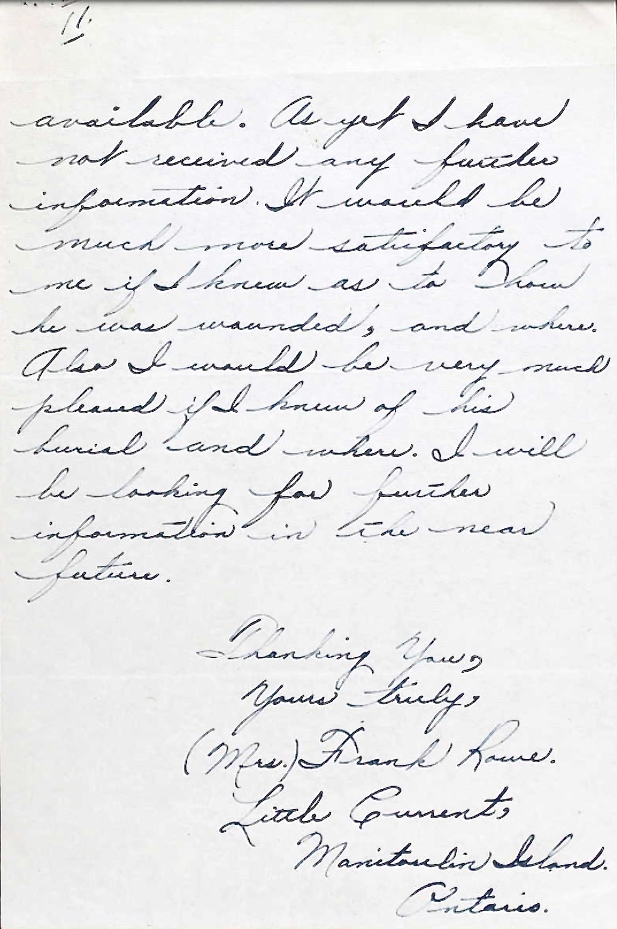 11.
available. As yet I have
not received any further
information. It would be
much more satisfactory to
me if I knew as to how
he was wounded, and where.
Also I would be very much
pleased if I knew of his
burial and where. I will
be looking for further
information in the near
future.
Thanking You,
Yours truly,
(Mrs.) Frank Rowe.
Little Current,
Manitoulin Island.
Ontario.